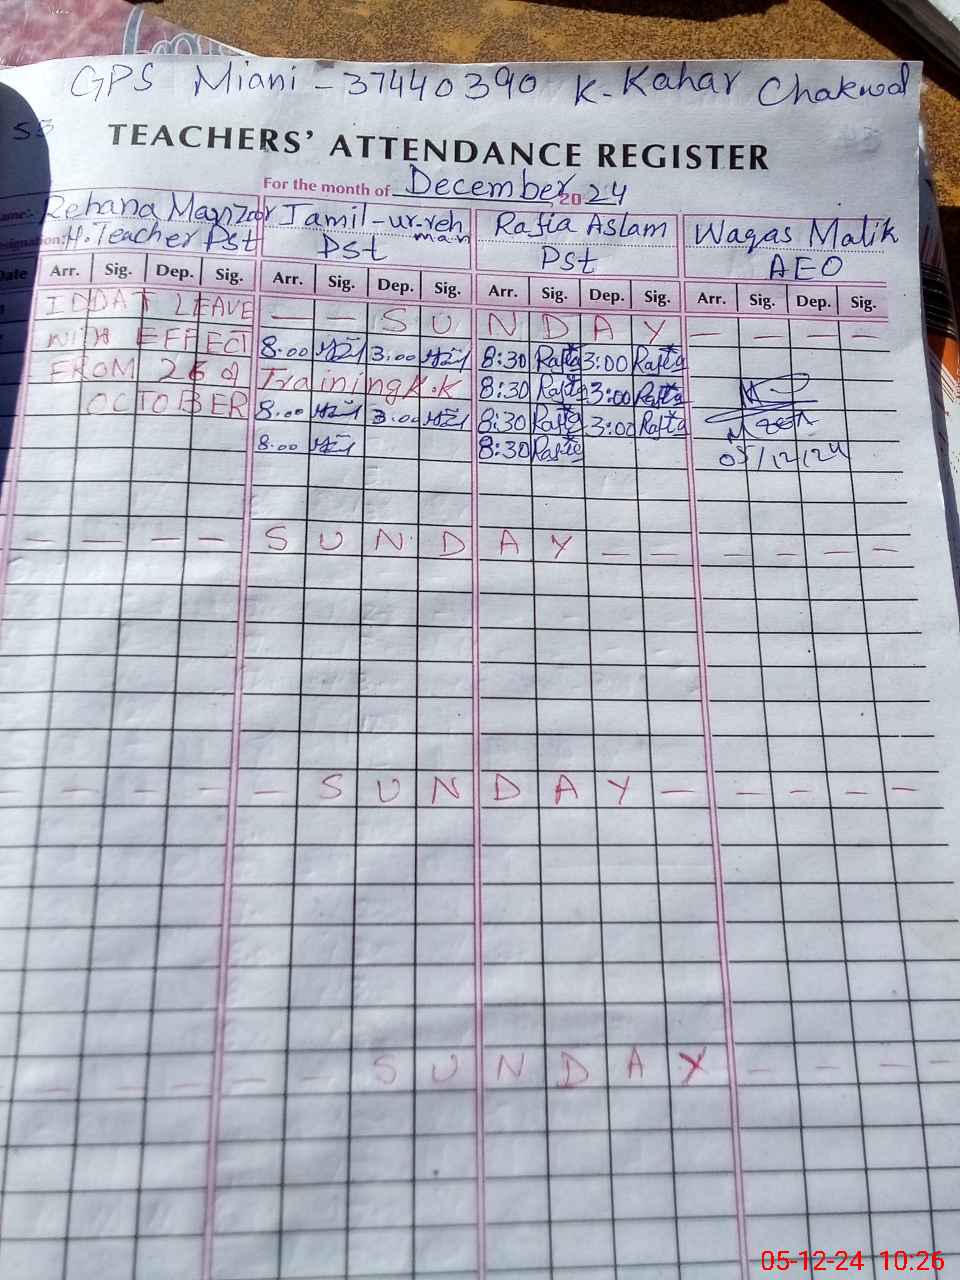 GPS Miani - 37440390 K. Kahar Chakwal
55
TEACHERS' ATTENDANCE REGISTER
For the month of December 2024
ame:- Rehana Manzoor Jamil-ur-reh man Rafia Aslam Waqas Malik
esignation: H.Teacher Pst Pst Pst AEO
Date Arr. Sig. Dep. Sig. Arr. Sig. Dep. Sig. Arr. Sig. Dep. Sig. Arr. Sig. Dep. Sig.
IDDAT LEAVE - - S U N D A Y - - - -
WITH EFFECT 8.00 3.00 8:30 Rafia 3:00 Rafia
FROM 26 Training K.K 8:30 Rafia 3:00 Rafia
OCTOBER 8.00 3.00 8:30 Rafia 3:00 Rafia
8.00 8:30 Rafia 05/12/24
- - - - S U N D A Y - - - - - -
- - - - - S U N D A Y - - - - -
- - - - - S U N D A Y - - - -
05-12-24 10:26